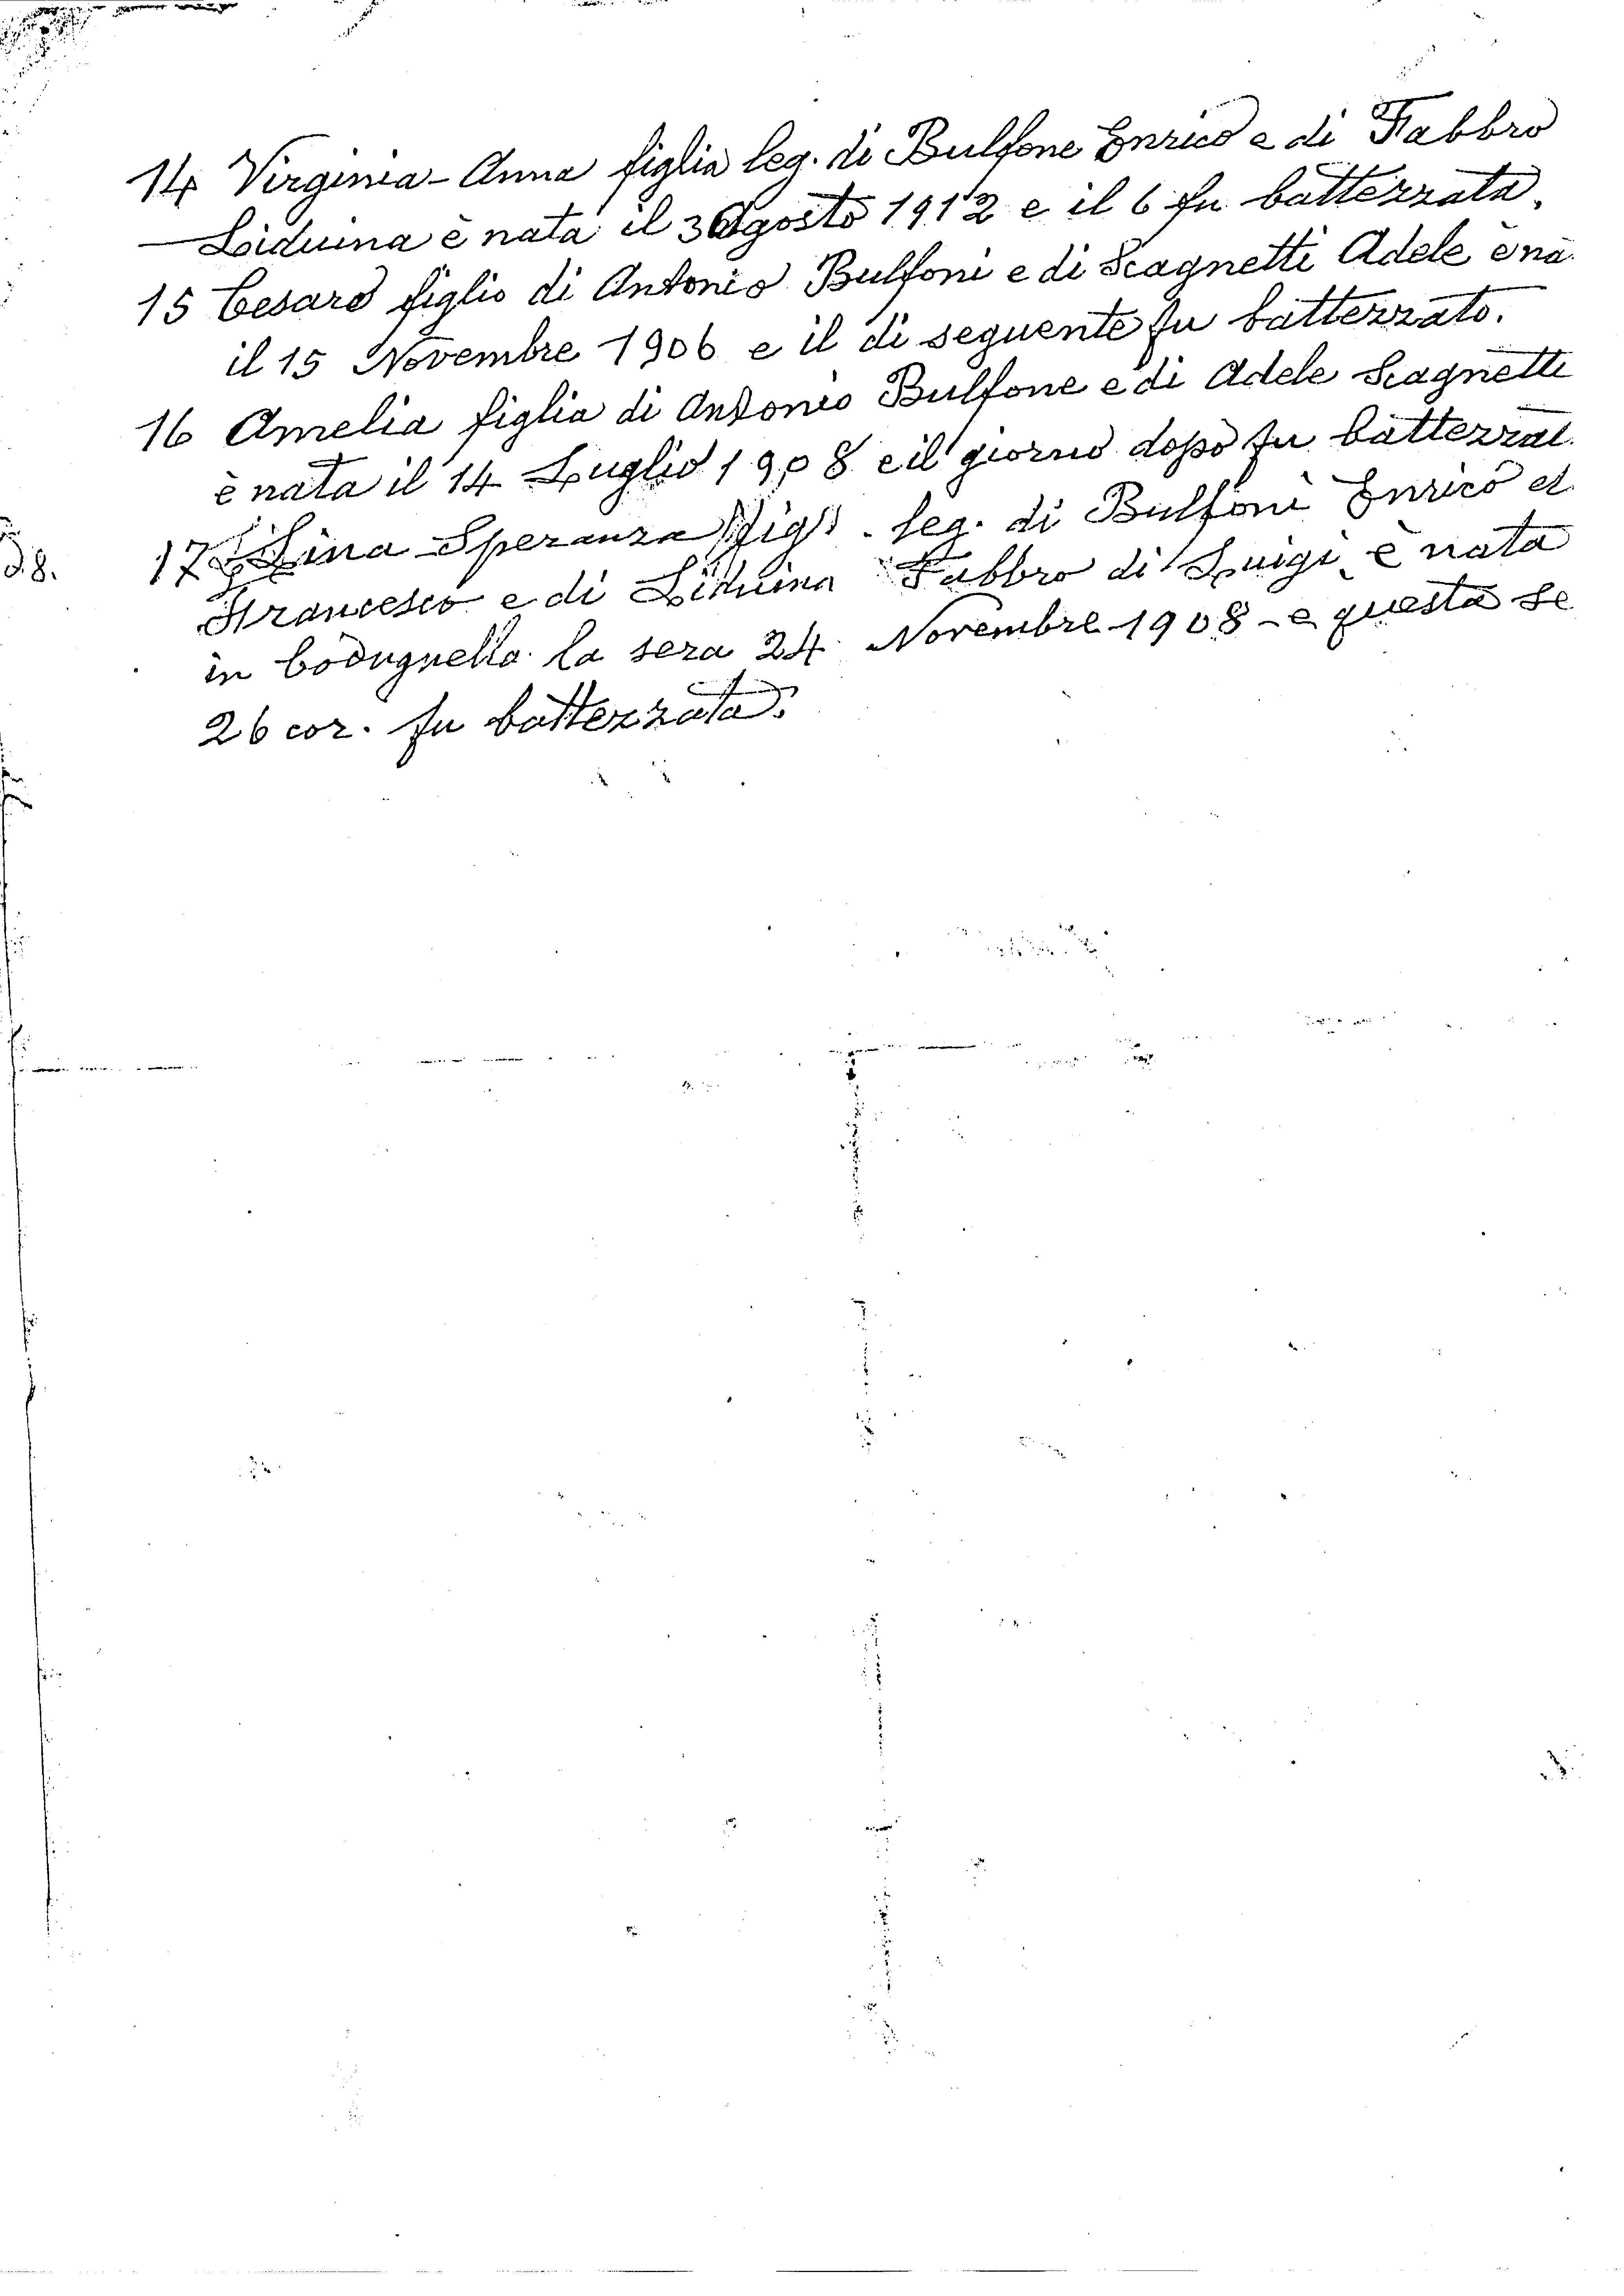 14 Virginia-Anna figlia leg. di Bulfone Enrico e di Fabbro
Liduina è nata il 3 Agosto 1912 e il 6 fu battezzata.
15 Cesare figlio di Antonio Bulfoni e di Scagnetti Adele è na
il 15 Novembre 1906 e il di seguente fu battezzato.
16 Amelia figlia di Antonio Bulfone e di Adele Scagnetti
è nata il 14 Luglio 1908 e il giorno dopo fu battezzat
17 Lina-Speranza figl. leg. di Bulfoni Enrico d
Francesco e di Liduina Fabbro di Luigi è nata
in Codugnella la sera 24 Novembre 1908 - e questa se
26 cor. fu battezzata.
d.8.